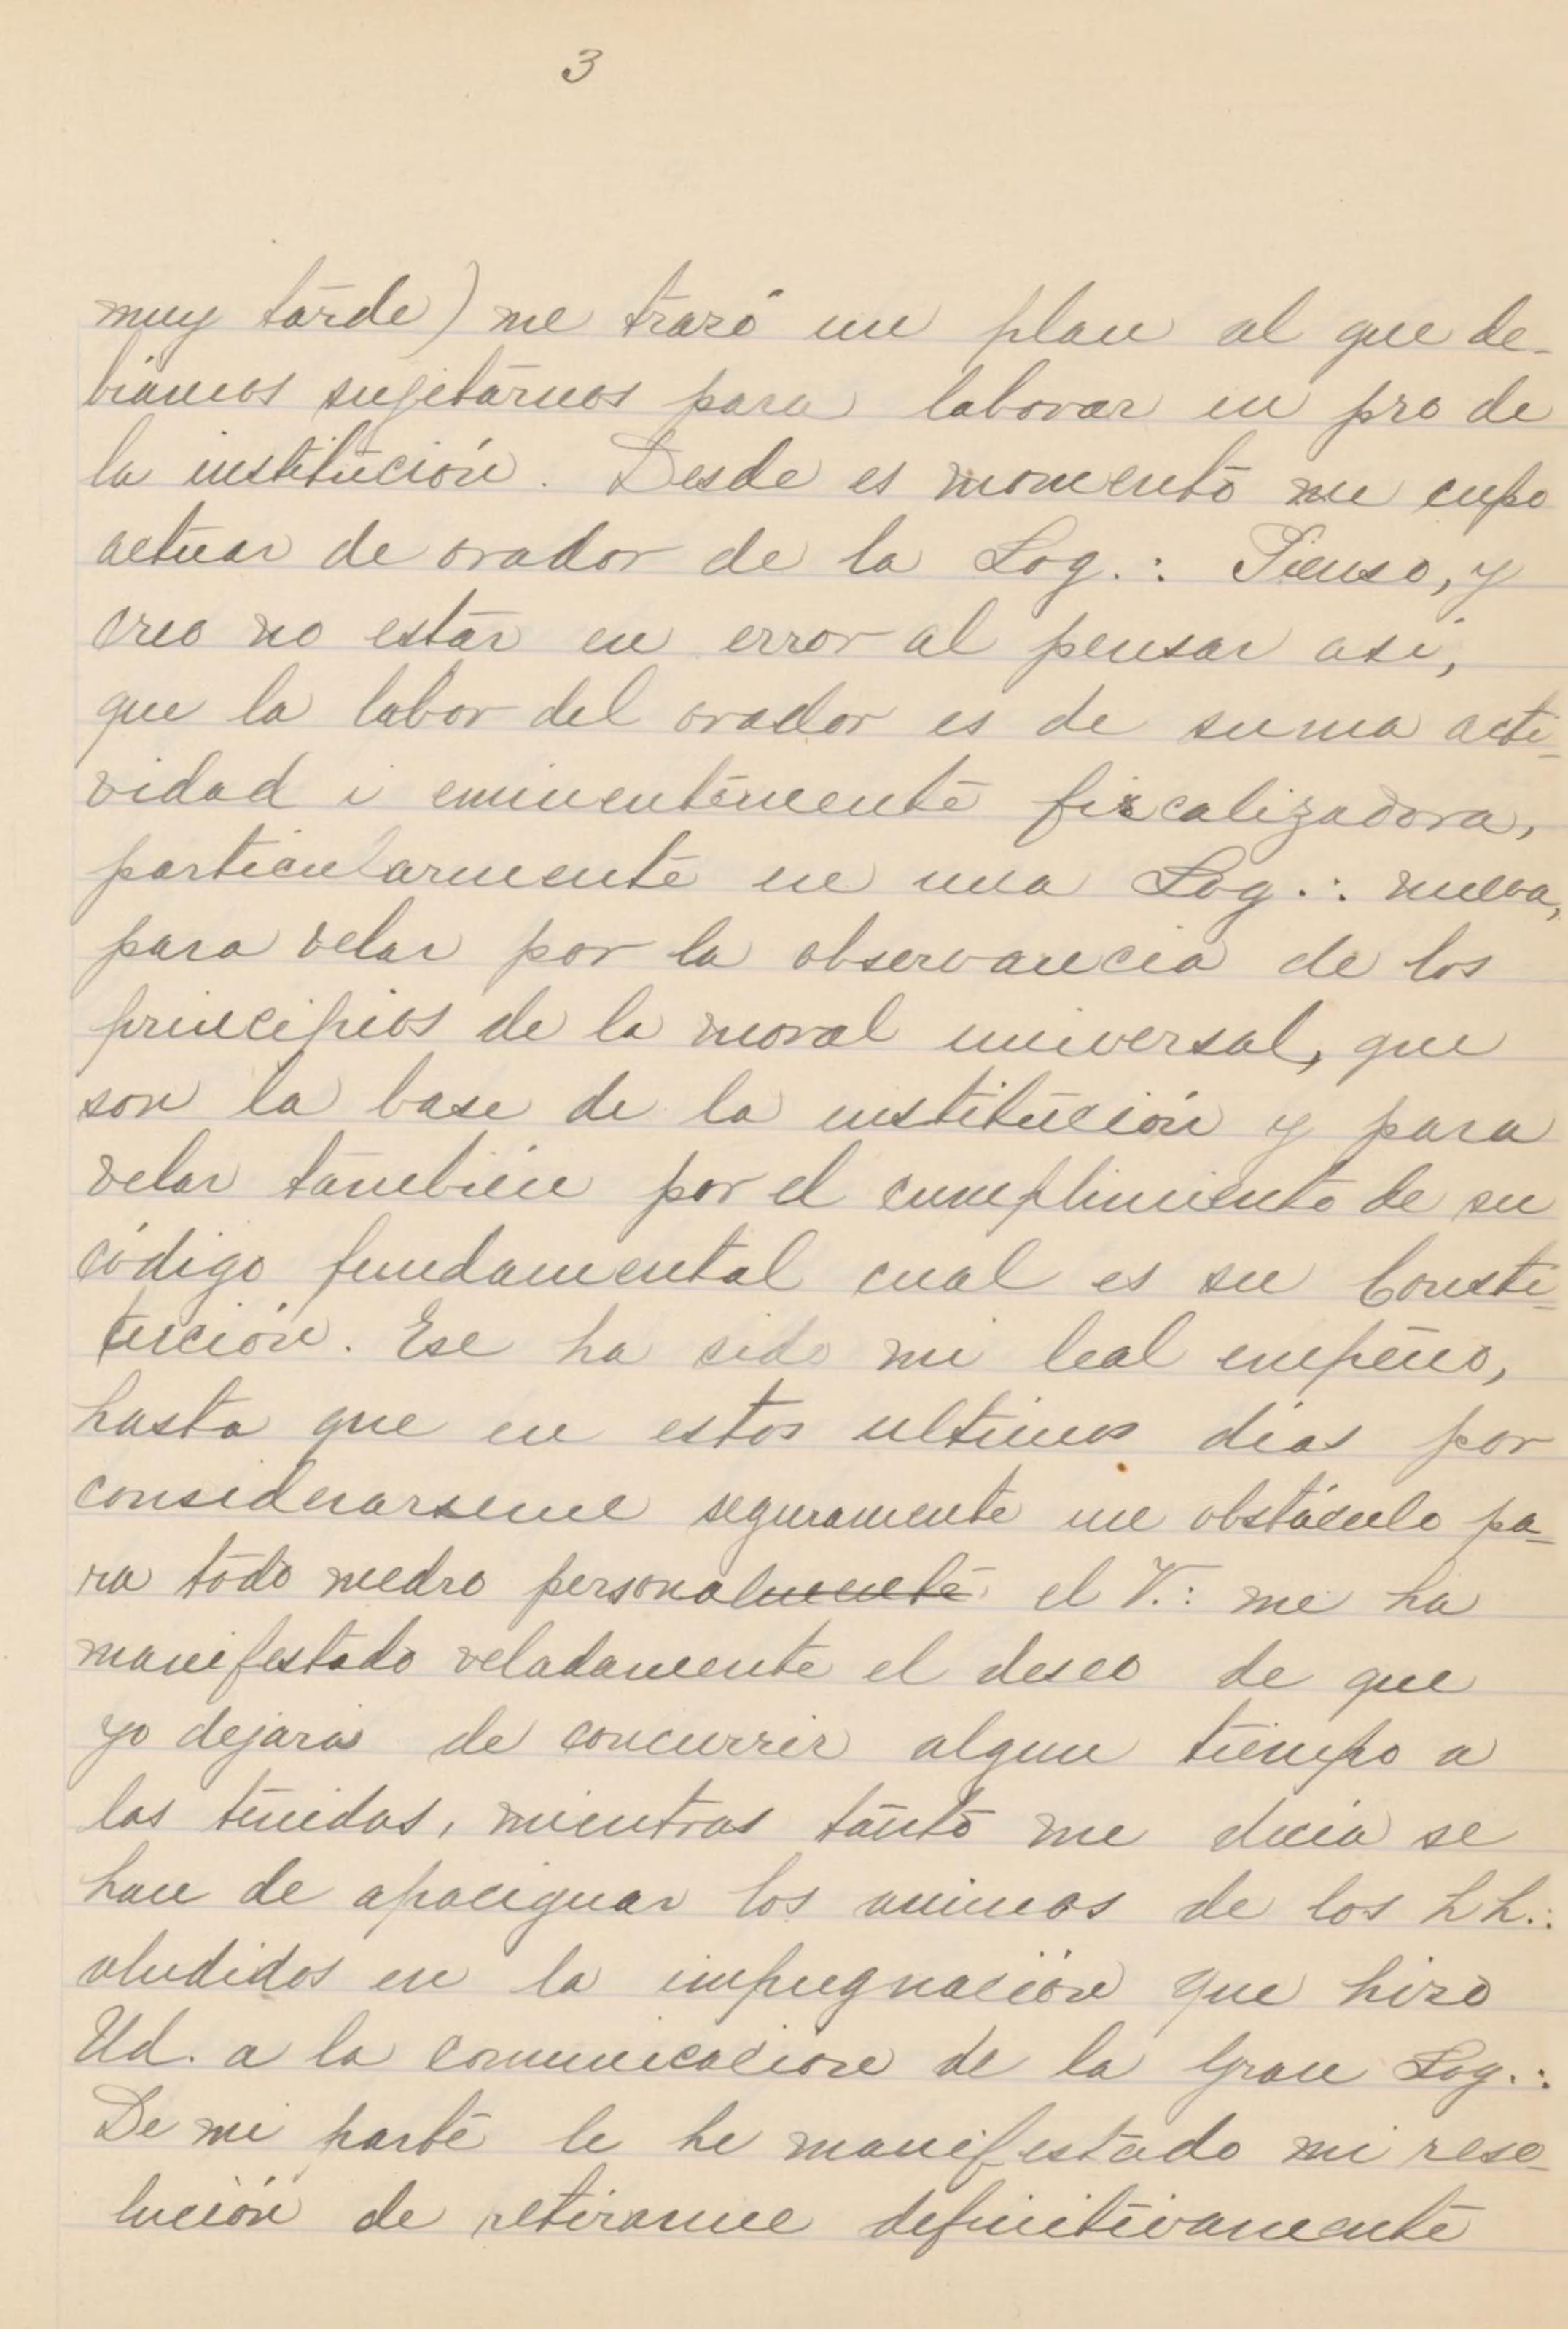 3
muy tarde) me trazó un plan al que de-
biamos sujetarnos para laborar en pro de
la institución. Desde es momento me cupo
actuar de orador de la Log.: Pienso, y
creo no estar en error al pensar asi,
que la labor del orador es de suma acti-
vidad i eminentemente fiscalizadora,
particularmente en una Log.: nueva,
para velar por la observancia de los
principios de la moral universal, que
son la base de la institución y para
velar tambien por el cumplimiento de su
código fundamental cual es su Consti-
tución. Ese ha sido mi leal empeño,
hasta que en estos ultimos dias por
considerarseme seguramente un obstáculo pa-
ra todo medro personalmente el V.: me ha
manifestado veladamente el deseo de que
yo dejara de concurrir algun tiempo a
las tenidas, mientras tanto me decia se
han de apaciguar los animos de los hh.:
aludidos en la impugnación que hizo
Ud. a la comunicacion de la Gran Log.:
De mi parte le he manifestado mi reso-
lución de retirarme definitivamente